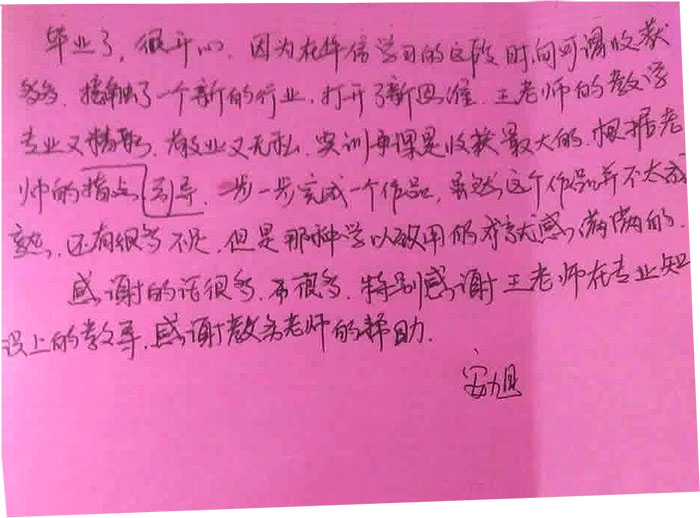 毕业了，很开心，因为在华信学习的这段时间可谓收获
多多，接触了一个新的行业，打开了新思维，王老师的教学
专业又精彩，敬业又无私，实训课是收获最大的，根据老
师的指点引导，一步一步完成一个作品，虽然这个作品并不太成
熟，还有很多不足，但是那种学以致用的成就感，满满的。
感谢的话很多，很多，特别感谢王老师在专业知
识上的教导，感谢教务老师的帮助.
安旭